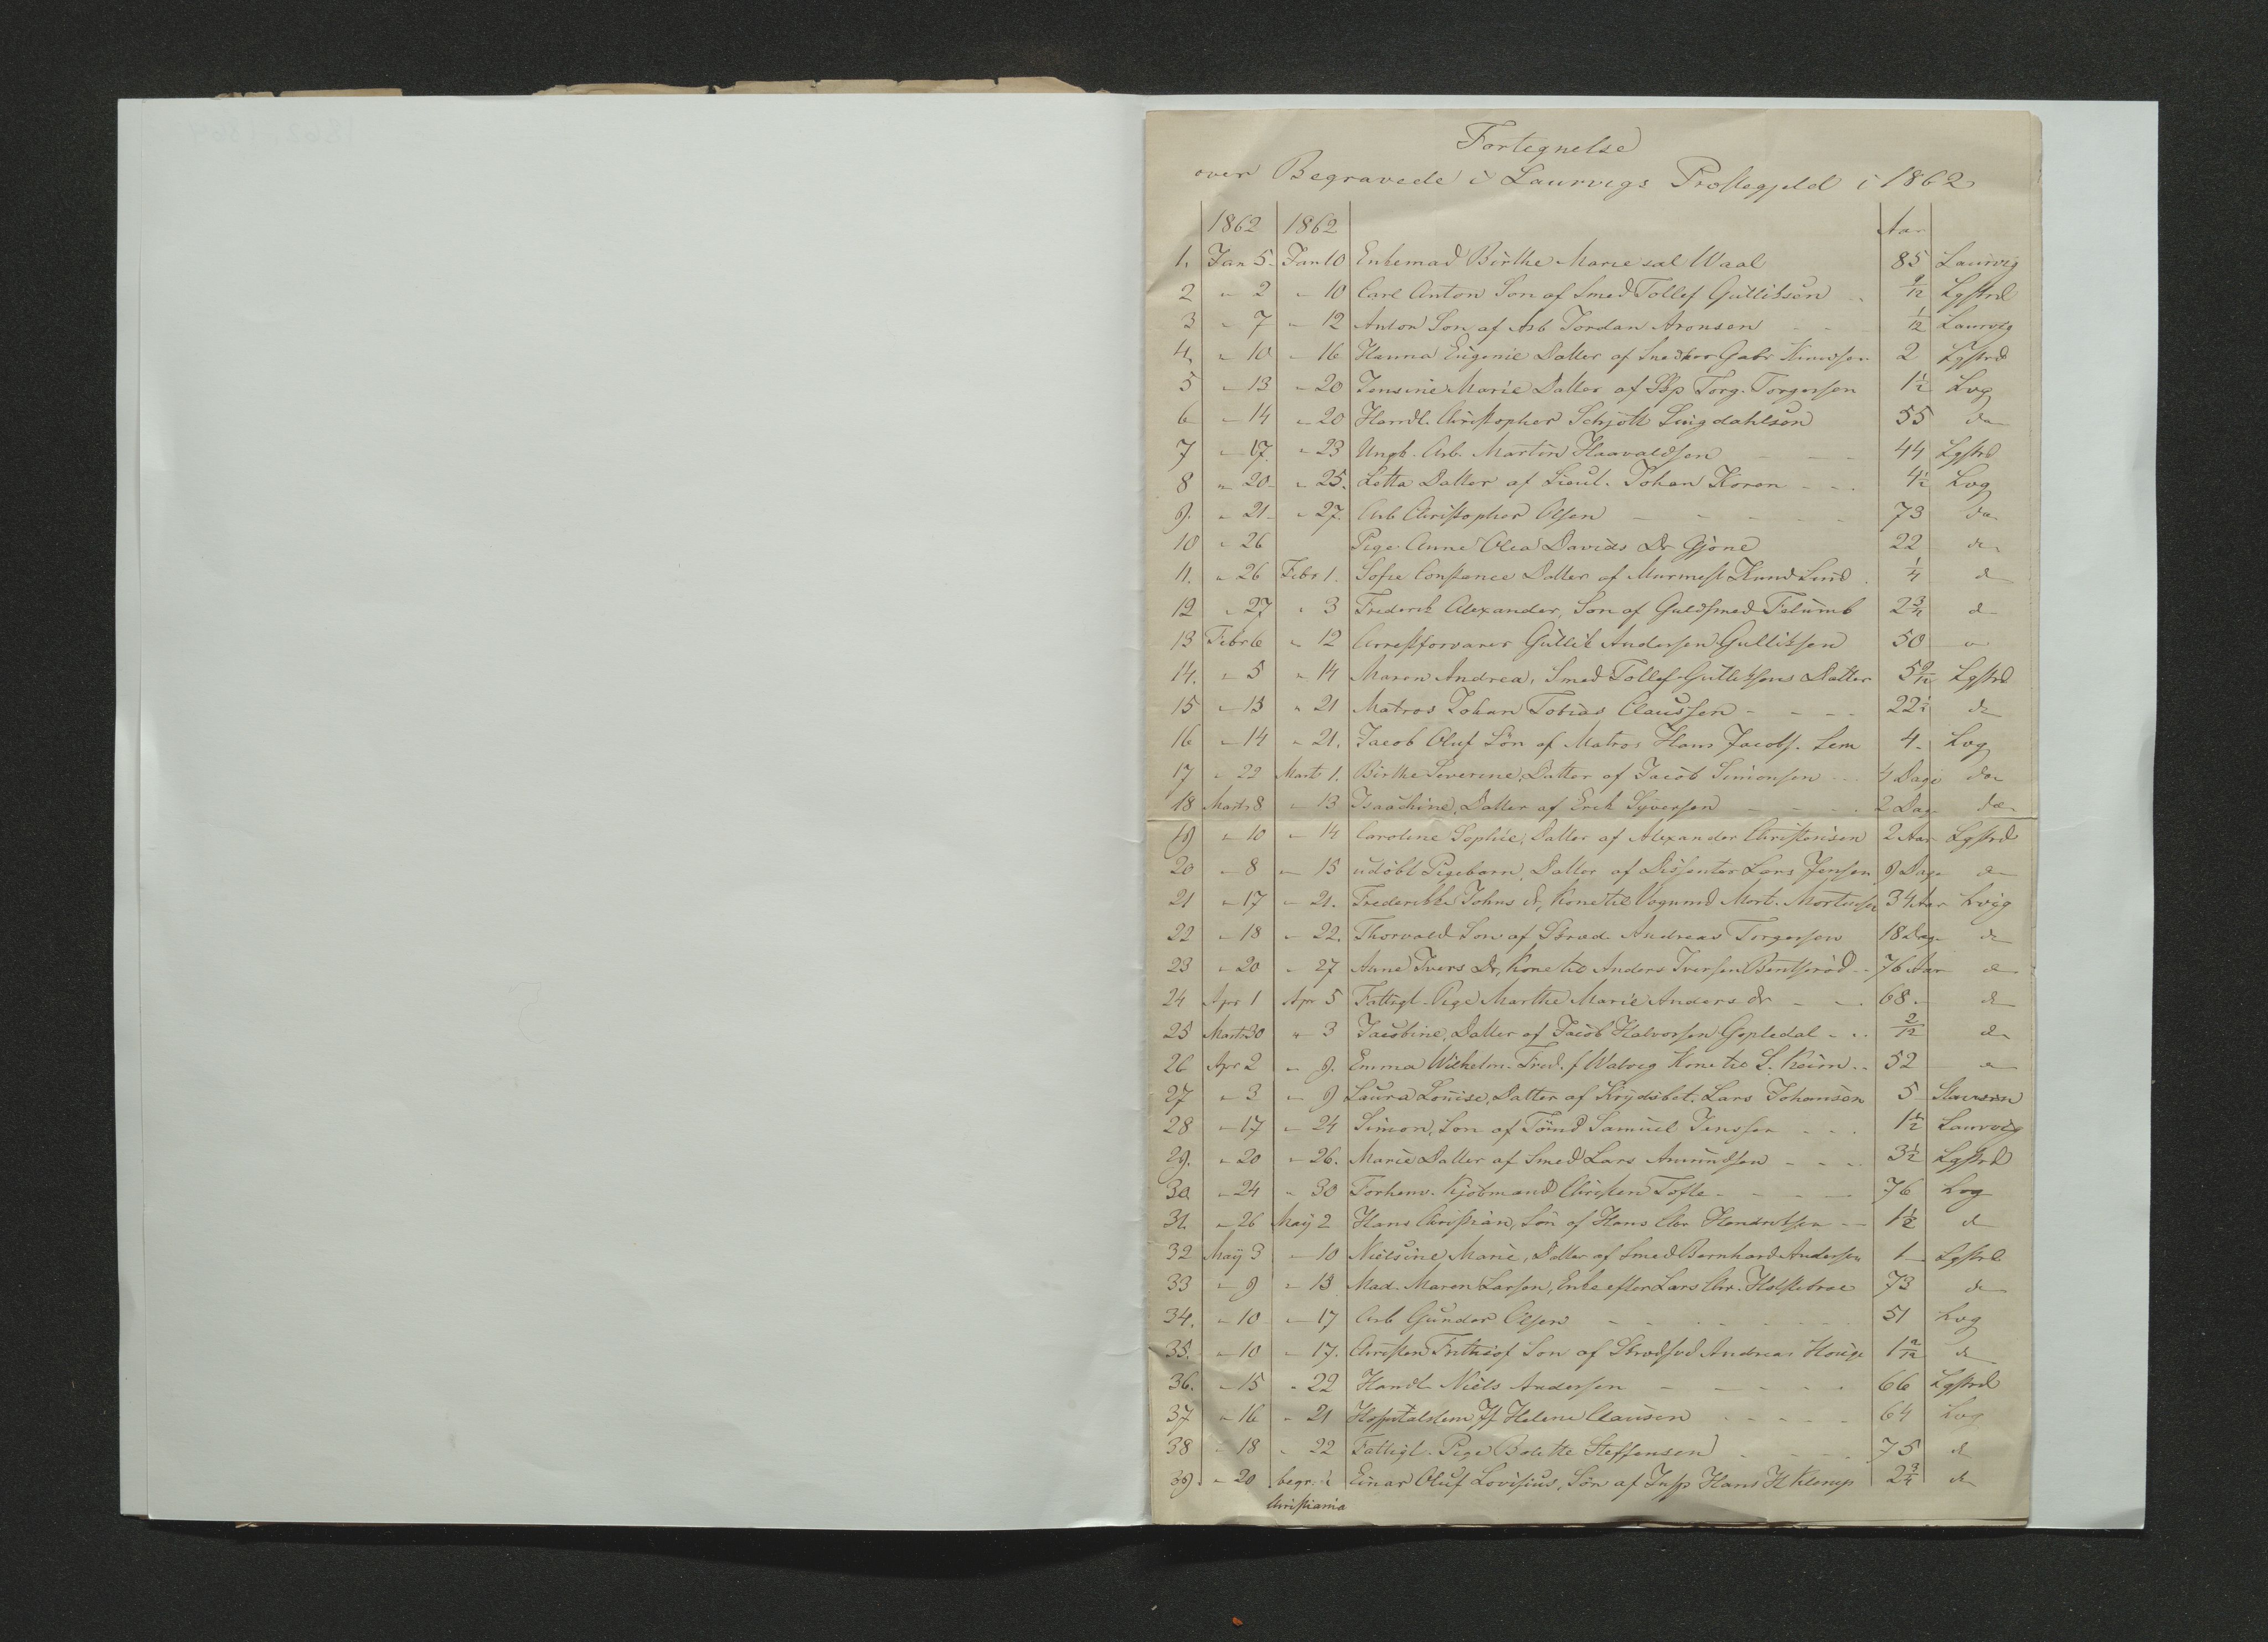 Fortegnelse
over Begravede i Laurvigs Prostegjeld i 1862
1862 1862 Aar
1. Jan 5. Jan 10 Enkemad Birthe Marie sal Waal 85 Laurvig
2 " 2 " 10 Carl Anton Søn af Smed Tollef Gulliksen 9/12 Lgstrd
3 " 7 " 12 Anton Søn af Arb Jordan Aronsen 1/12 Laurvig
4. " 10 " 16 Hanna Eugenie Datter af Snedker Gabr Knudsen 2 Lgstrd
5 " 13 " 20 Jensine Marie Datter af Skp Torg. Torgersen 1½ Lvg
6 " 14 " 20 Handl. Christopher Schjøtt Lingdahlsen 55 do
7 " 17. " 23 Ungk. Arb. Martin Haavaldsen 44 Lgstrd
8 " 20 " 25. Lotta Datter af Lieut. Johan Koren 4½ Lvg
9. " 21 " 27. Arb Christopher Olsen 73 do
10 " 26 Pige Anne Olea Davids Dr Gjone 22 do
11. " 26 Febr 1. Sofie Constance Datter af Murmest Knud Lund ¼ d
12 " 27 " 3 Frederik Alexander, Søn af Guldsmed Felumb 2 3/12 d
13 Febr 6 " 12 Arrestforvarer Gullik Andersen Gulliksen 50 "
14. " 5 " 14 Maren Andrea, Smed Tollef Gulliksens Datter 5 9/12 Lgstrd
15 " 13 " 21 Matros Johan Tobias Claussen 22½ do
16 " 14 " 21. Jacob Oluf Søn af Matros Hans Jacobs. Lem 4. Lvg
17 " 22 Marts 1. Birthe Severine, Datter af Jacob Simonsen 4 Dage do
18 Marts 8 " 13 Isaachine, Datter af Erik Syversen 2 Dag do
19 " 10 " 14 Caroline Sophie, Datter af Alexander Christensen 2 Aar Lgstrd
20 " 8 " 15 udøbt Pigebarn, Datter af Dissenter Lars Jensen 9 Dage d
21 " 17 " 21. Frederikke Johns d, Kone til Vognmd Mort. Mortensen 34 Aar Lvig
22 " 18 " 22. Thorvald Søn af Skræd. Andreas Torgersen 18 Dag d
23 " 20 " 27 Anne Ivers Dr, Kone til Anders Iversen Bentserød 76 Aar d
24 Apr 1 Apr 5 Fattigl. Pige Marthe Marie Anders dr 68 d
25 Marts 30 " 3 Jacobine, Datter af Jacob Halvorsen Gopledal 2/12 d
26 Apr 2 " 9. Emma Wilhelm. Fred. f Walvig Kone til S. Keim 52 "
27 " 3 " 9 Laura Louise, Datter af Krydsbet. Lars Johansen 5 Stavern
28 " 17 " 24 Simon, Søn af Tømd Samuel Jenssen 1½ Laurvig
29. " 20 " 26. Marie Datter af Smed Lars Amundsen 3½ Lgstrd
30. " 24 " 30 Forhenv. Kjøbmand Christen Tofte 76 Lvg
31. " 26 May 2 Hans Christian, Søn af Hans Chr Hendriksen 1½ d
32 May 3 " 10 Nielsine Marie, Datter af Smed Bernhard Andersen 1 Lgstrd
33 " 9 " 13 Mad. Maren Larsen, Enke efter Lars Chr. Holstetroe 73 d
34. " 10 " 17 Arb Gunder Olsen 51 Lvg
35. " 10 " 17. Christen Frithiof Søn af Andreas Houge 1 2/12 d
36. " 15 " 22 Handl Niels Andersen 66 Lgstrd
37 " 16 " 21 Hospitalslem Jf Helene Clausen 64 Lvg
38 " 18 " 22 Fattigl. Pige Bolette Steffensen 75 d
39 " 20 begr. i Einar Oluf Lovisius, Søn af Insp Hans H Klerup 2¾ d
Christiania